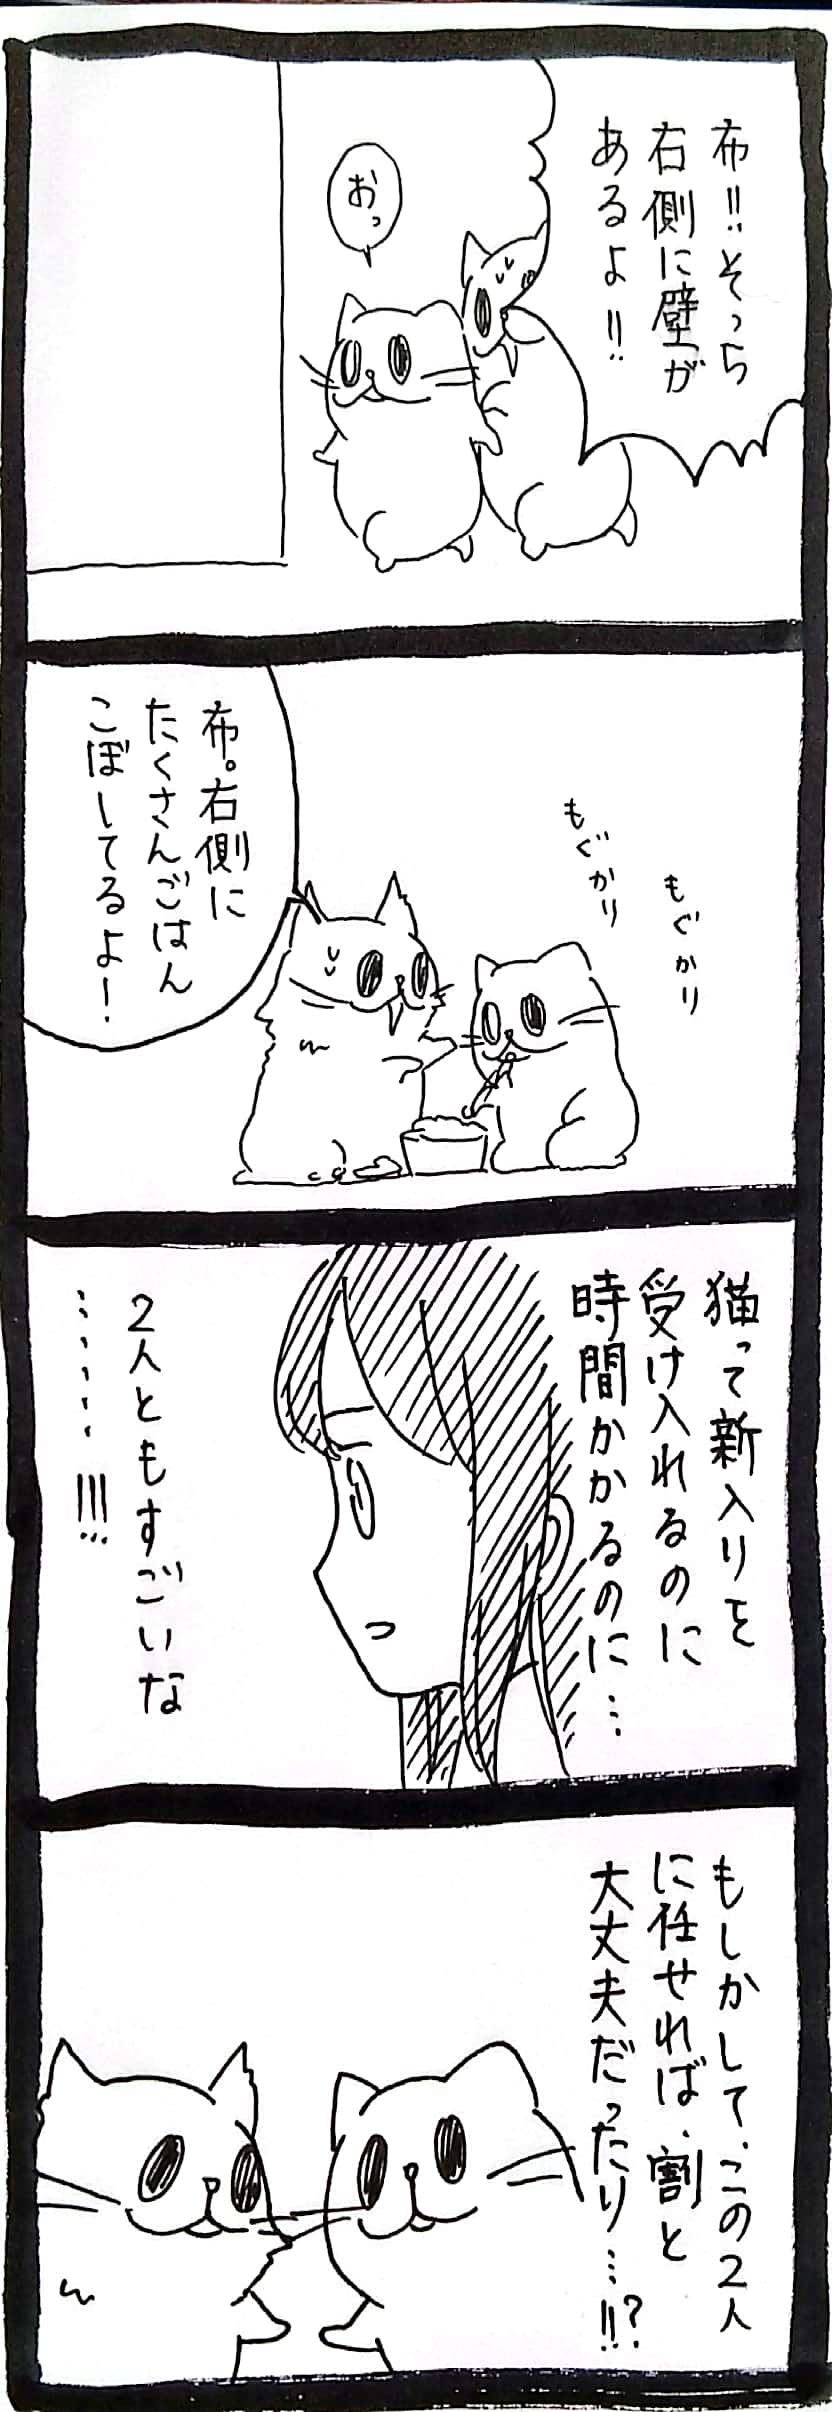 布!!そっち
右側に壁が
あるよ!!
おっ
もぐかり
もぐかり
布。右側に
たくさんごはん
こぼしてるよ!
猫って新入りを
受け入れるのに
時間かかるのに…
2人ともすごいな
……!!!
もしかして、この2人
に任せれば、割と
大丈夫だったり…!!?